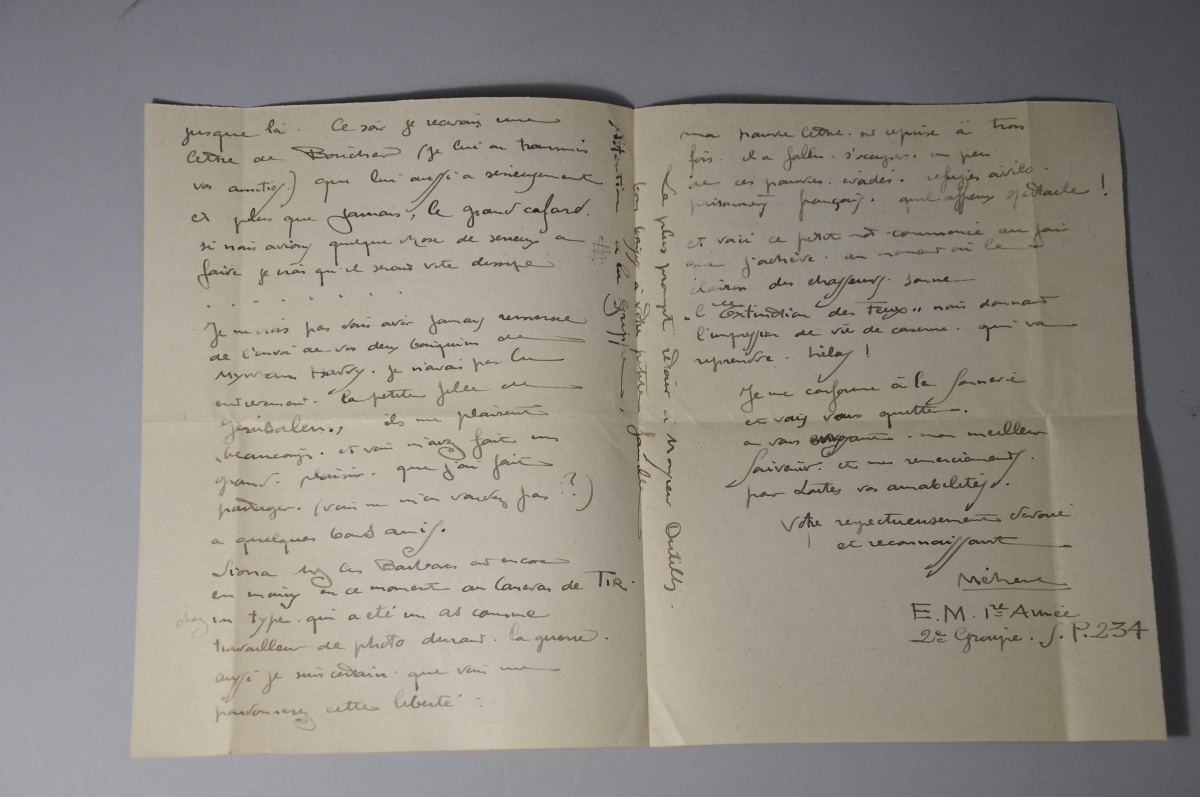 jusque là. Ce soir je recevais une
lettre de Bouchard (je lui ai transmis
vos amitiés.) que lui aussi a sérieusement
et plus que jamais, le grand cafard.
si nous avions quelque chose de sérieux a
faire je crois qu'il serait vite dissipé
. . . . . . .
Je ne crois pas vous avoir jamais remercié
de l'envoi de vos deux bouquins de
Myriam Harry. je n'avais pas lu
entièrement. la petite fille de
Jérusalem., ils me plaisent
beaucoup. et vous m'avez fait un
grand plaisir. que j'ai fait
partager. (vous ne m'en voudrez pas ??)
a quelques bons amis.
Siona chez les Barbares est encore
en mains en ce moment au Canevas de TIR.
chez un type. qui a été un as comme
travailleur de photo durant. la guerre.
aussi je suis certain. que vous me
pardonnerez cette liberté.
Attention à la Grippe,
bons baisers à votre petite famille
Le plus prompt retour à Monsieur Dutilly.
ma pauvre lettre. est reprise à trois
fois. il a fallu. s'occuper. un peu
de ces pauvres. évadés. réfugiés civils.
prisonniers français. quel affreux spectacle!
et voici ce petit mot. commencé au
que j'achève. au moment où le
clairon des chasseurs. sonne
"l'Extinction des Feux" nous donnant
l'impression de vie de caserne. qui va
reprendre. hélas!
Je me conforme à la Sonnerie
et vais vous quitter.
en vous envoyant. mon meilleur
Souvenir. et mes remerciements.
pour toutes vos amabilités.
Votre respectueusement dévoué
et reconnaissant
Méheut
E.M. 1re Armée
2e Groupe. S.P. 234